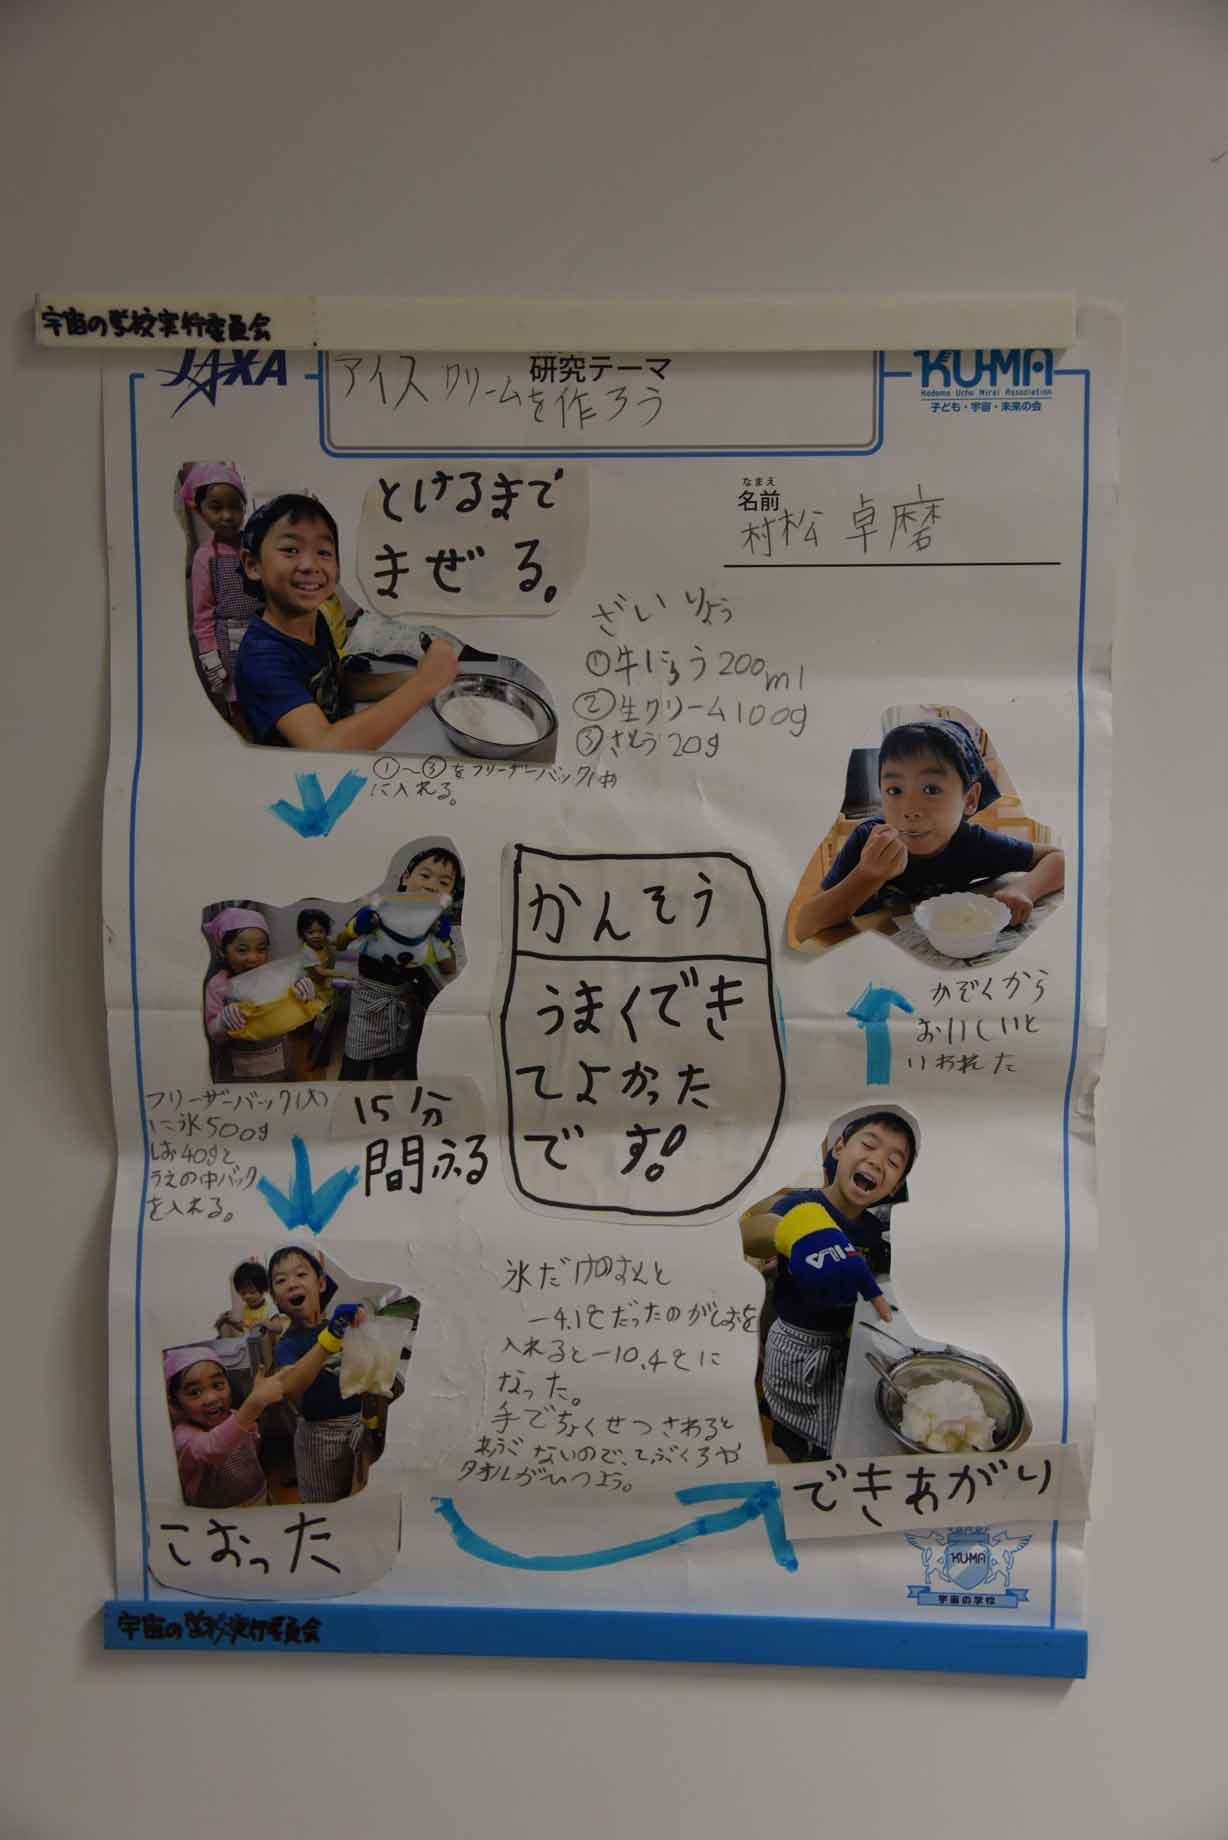 宇宙の学校実行委員会
JAXA
研究テーマ
アイスクリームを作ろう
KU-MA
Kodomo Uchu Mirai Association
子ども・宇宙・未来の会
なまえ
名前
村松 卓磨
とけるまで
まぜる。
ざいりょう
①牛にゅう200ml
②生クリーム100g
③さとう20g
①〜③をフリーザーバック(中)
に入れる。
フリーザーバック(大)
に氷500g
しお40gと
うえの中バック
を入れる。
15分
間ふる
こおった
かんそう
うまくでき
てよかった
です。
氷だけのおんど
-4.1℃だったのがしおを
入れると-10.4℃に
なった。
手でちょくせつさわると
あぶないので、てぶくろや
タオルがひつよう。
FILA
できあがり
かぞくから
おいしいと
いわれた
KU-MA
宇宙の学校
宇宙の学校実行委員会